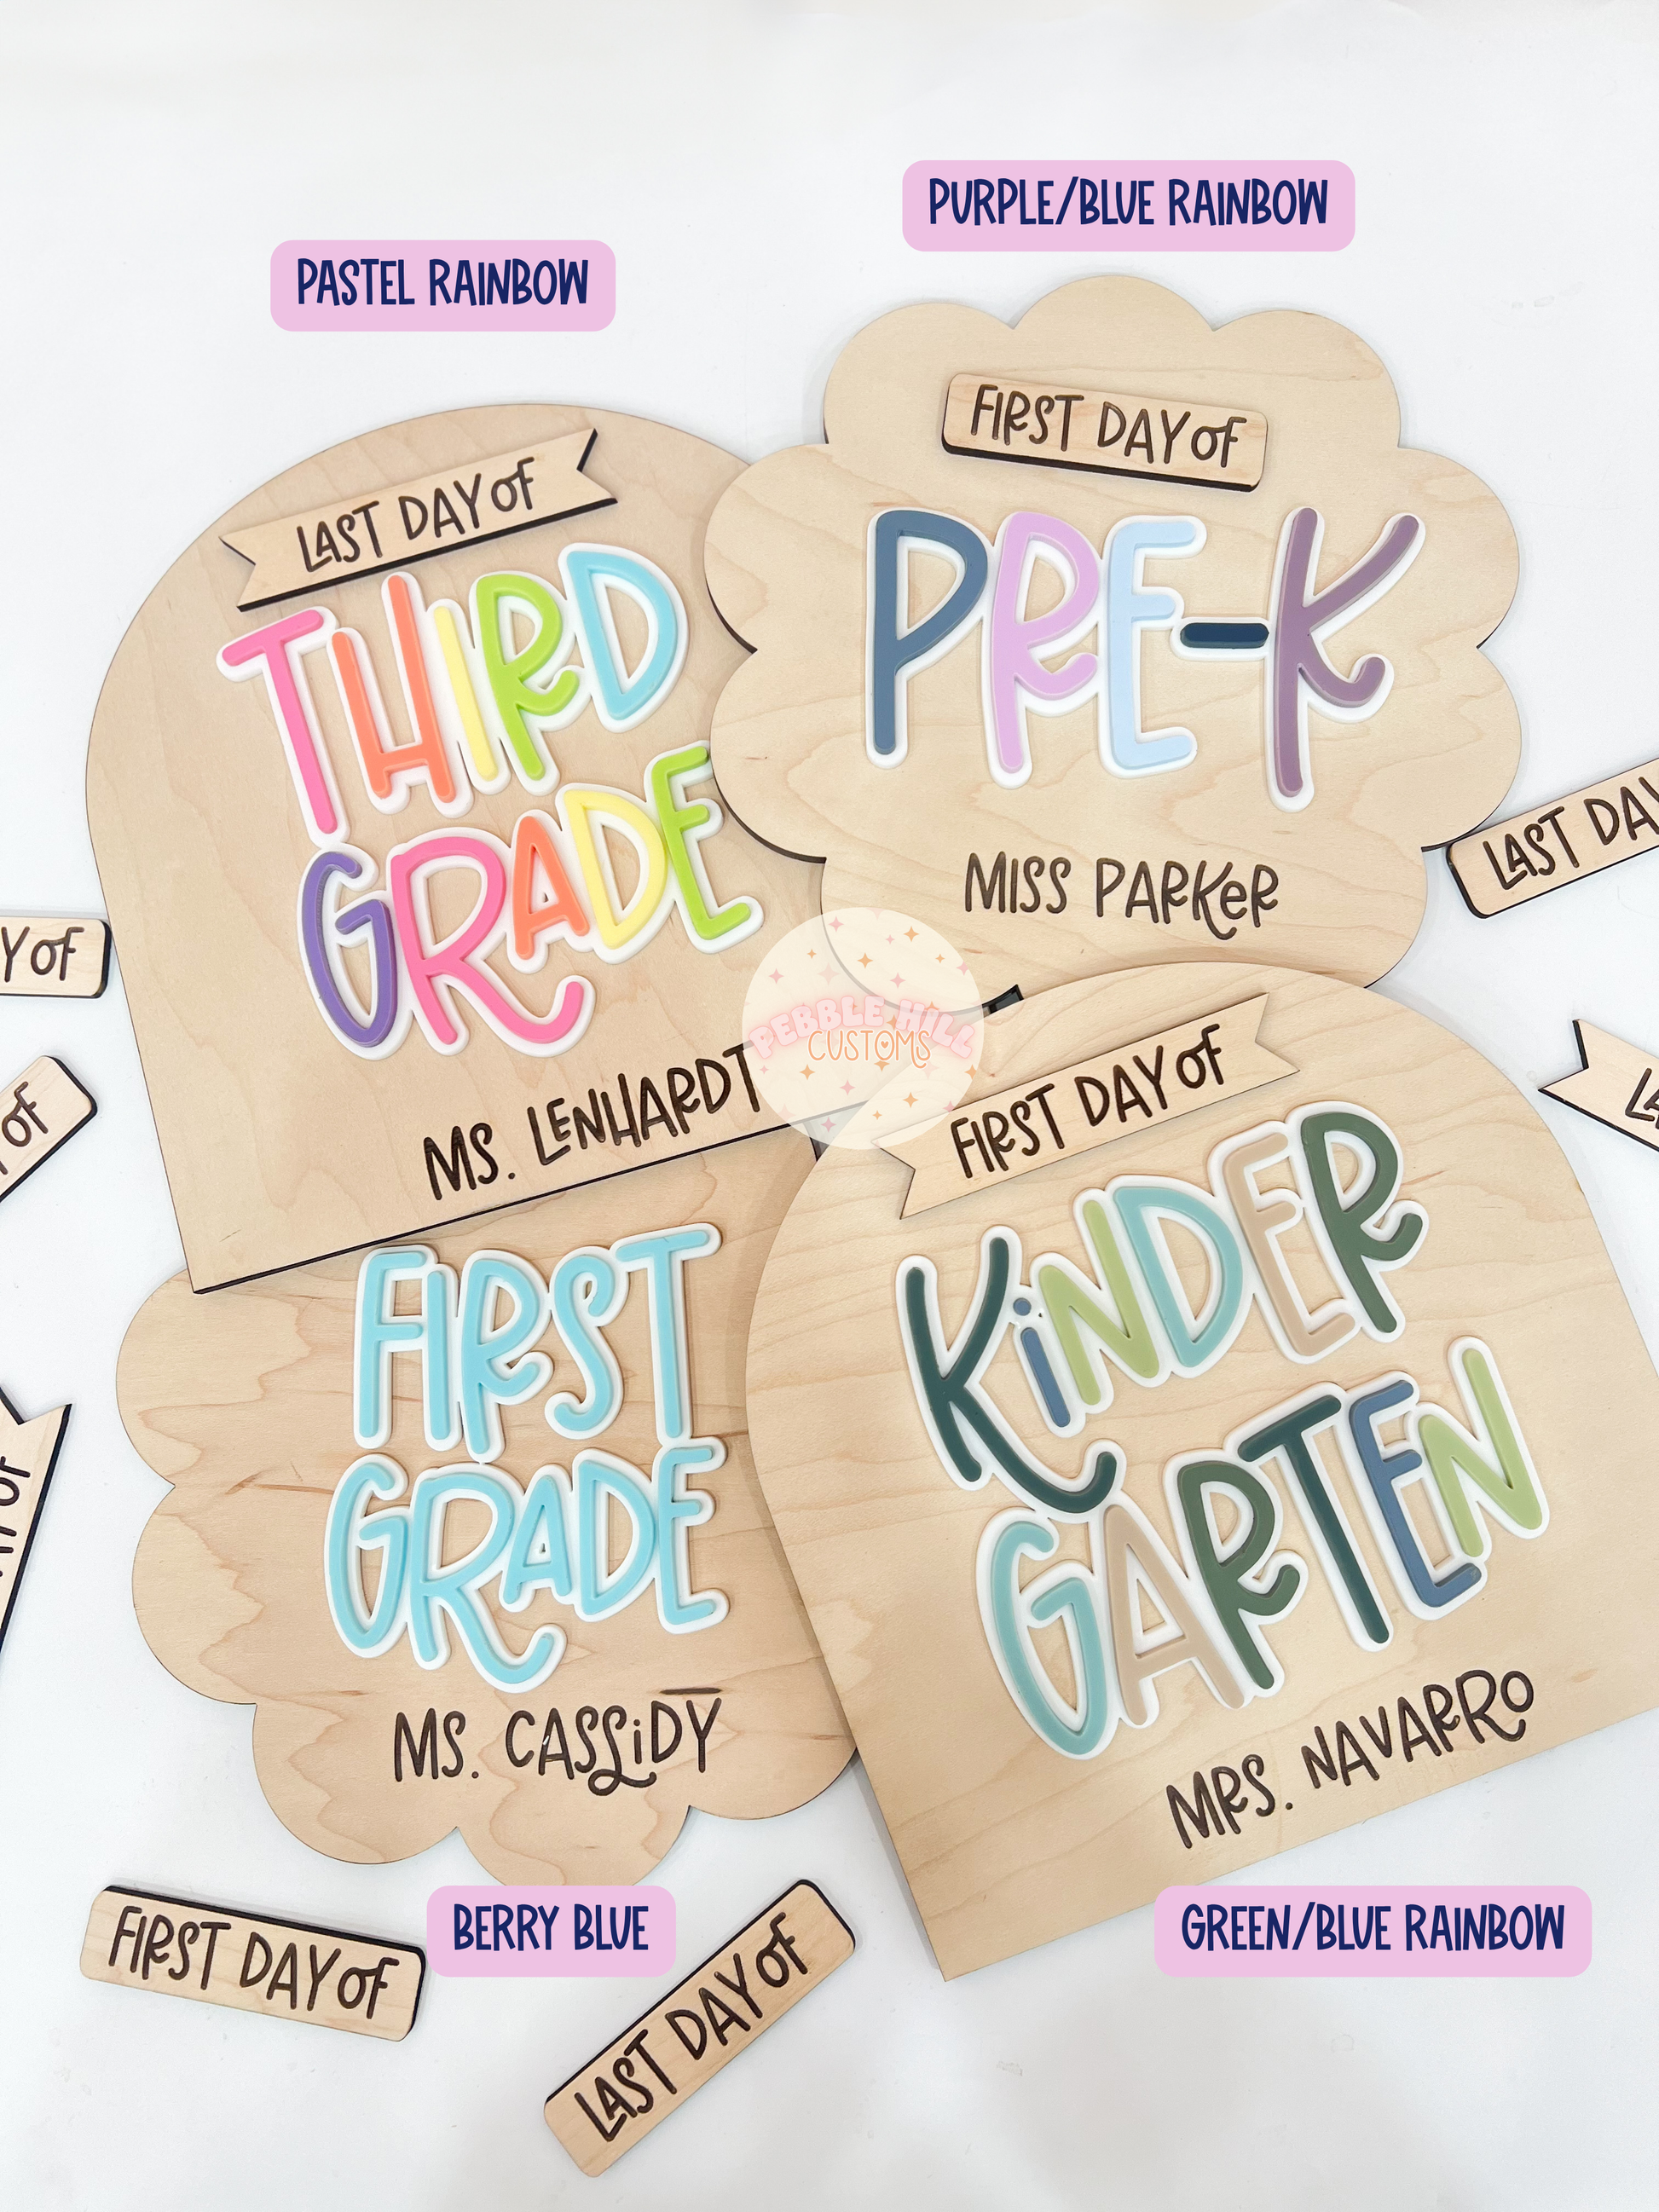 PURPLE/BLUE RAINBOW
PASTEL RAINBOW
LAST DAY OF
THIRD
GRADE
MS. LENHARDT
FIRST DAY OF
PRE-K
MISS PARKER
LAST DAY
Y OF
OF
PEBBLE HILL
CUSTOMS
FIRST DAY OF
KiNDER
GARTEN
MRS. NAVARRO
FIRST
GRADE
MS. CASSiDY
FIRST DAY OF
BERRY BLUE
LAST DAY OF
GREEN/BLUE RAINBOW